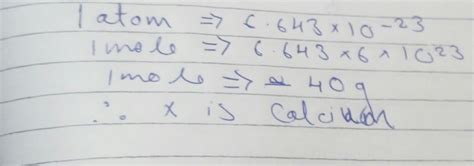 1 atom => 6.643 x 10-23
1 mole => 6.643 x 6 x 1023
1 mole => 40g
∴ x is Calcium